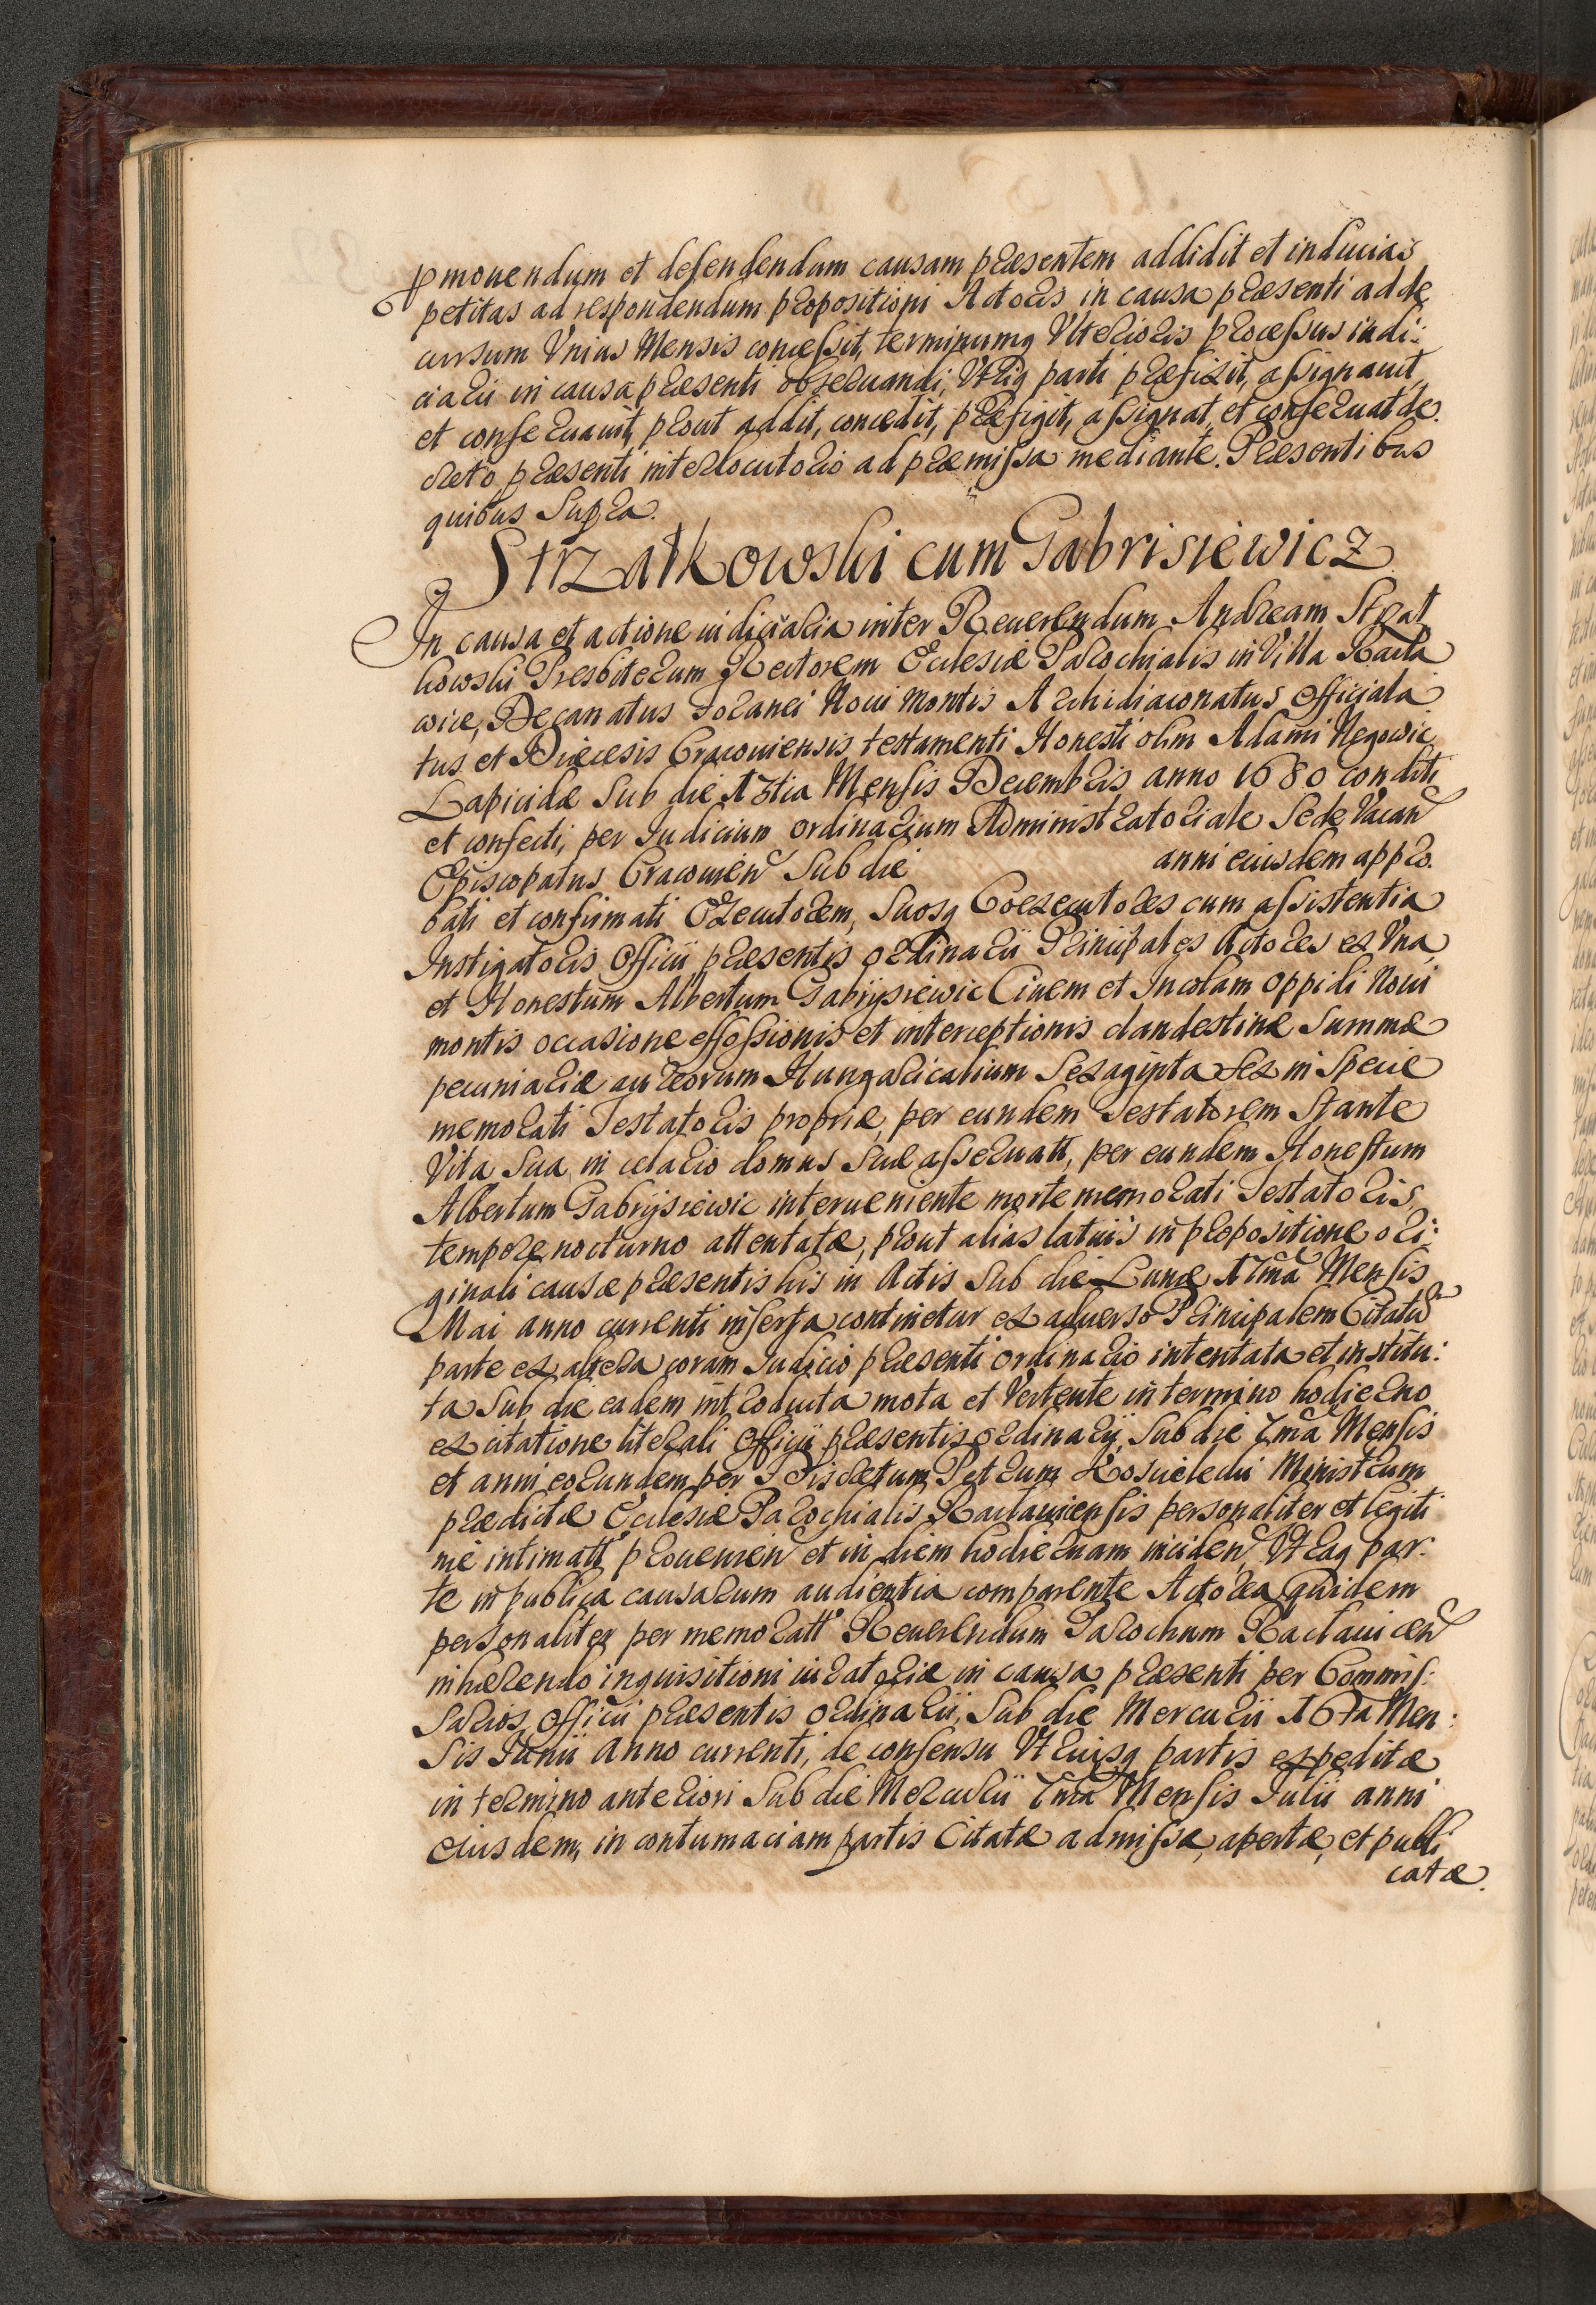 pmouendum et defendendum causam præsentem addidit et inducias
petitas ad respondendum propositioni Actoris in causa præsenti ad de
cursum Vnius Mensis concessit, terminumq Vlterioris processus iudi:
ciarii in causa præsenti obseruandi, Vtriq parti præfixit, assignauit,
et conseruauit, prout addit, concedit, præfigit, assignat, et conseruat de
creto præsenti interlocutorio ad præmissa mediante. Præsentibus
quibus Supra.
Strzałkowski cum Gabrisiewicz
In causa et actione iudiciaria inter Reuerendum Andream Strzał
kowski Presbiterum Rectorem Ecclesiæ Parochialis in Villa Racła
wice, Decanatus foranei Noui Montis Archidiaconatus Officiala
tus et Diæcesis Cracouiensis testamenti Honesti olim Adami Negowic
Lapicidæ Sub die 13tia Mensis Decembris anno 1680 conditi
et confecti, per Iudicium ordinarium Administratoriale Sede Vacan
Episcopatus Cracouien Sub die anni eiusdem appro.
bati et confirmati Executorem, Suosq Coexecutores cum assistentia
Instigatoris Officii præsentis ordinarii Principales Actores ex Vna,
et Honestum Albertum Gabrysiewic Ciuem et Incolam oppidi Noui
montis occasione effossionis et interceptionis clandestinæ Summæ
pecuniariæ aureorum Hungaricalium Sexaginta Sex in Specie
memorati Testatoris propriæ, per eundem Testatorem Stante
Vita Sua, in celario domus Suæ asseruatt, per eundem Honestum
Albertum Gabrysiewic interueniente morte memorati Testatoris,
tempore nocturno attentatæ, prout alias latiuis in propositione ori:
ginali causæ præsentis his in Actis Sub die Lunæ 11ma Mensis
Mai anno currenti inserta continetur ex aduerso Principalem Citatũ
parte ex altera coram Iudicio præsenti ordinario intentata et institu:
ta Sub die eadem introducta mota et Vertente in termino hodierno
ex citatione literali Officii præsentis ordinarij, Sub die 7ma Mensis
et anni eorundem per Discretum Petrum Koscielecki Ministrum
prædictæ Ecclesiæ Parochialis Racłauicensis personaliter et legiti
me intimatt prouenien et in diem hodiernam inciden, Vtraq par:
te in publica causarum audientia comparente Actorea quidem
personaliter per memoratt Reuerendum Parochum Racłauicen
inhærendo inquisitioni iuratoriæ in causa præsenti per Commis:
Sarios Officii præsentis ordinarii, Sub die Mercurii 16ta Men:
Sis Iunii anno currenti, de consensu Vtriusq partis expeditæ
in termino anteriori Sub die Mercurii 7ma Mensis Iulii anni
eiusdem, in contumaciam partis Citatæ admissæ, apertæ, et publi
catæ.